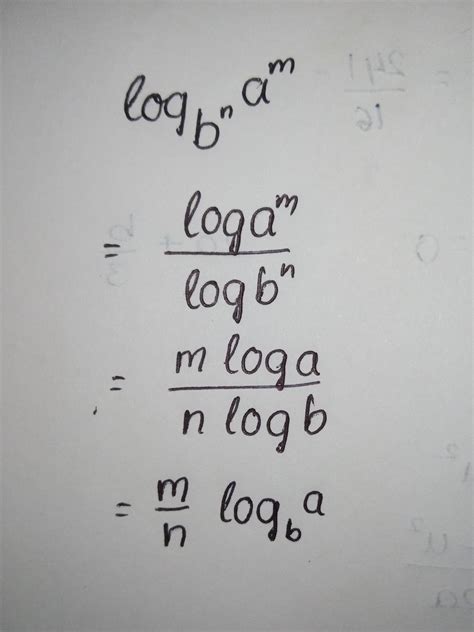 log_{b^n} a^m
= \frac{log a^m}{log b^n}
= \frac{m log a}{n log b}
= \frac{m}{n} log_b a